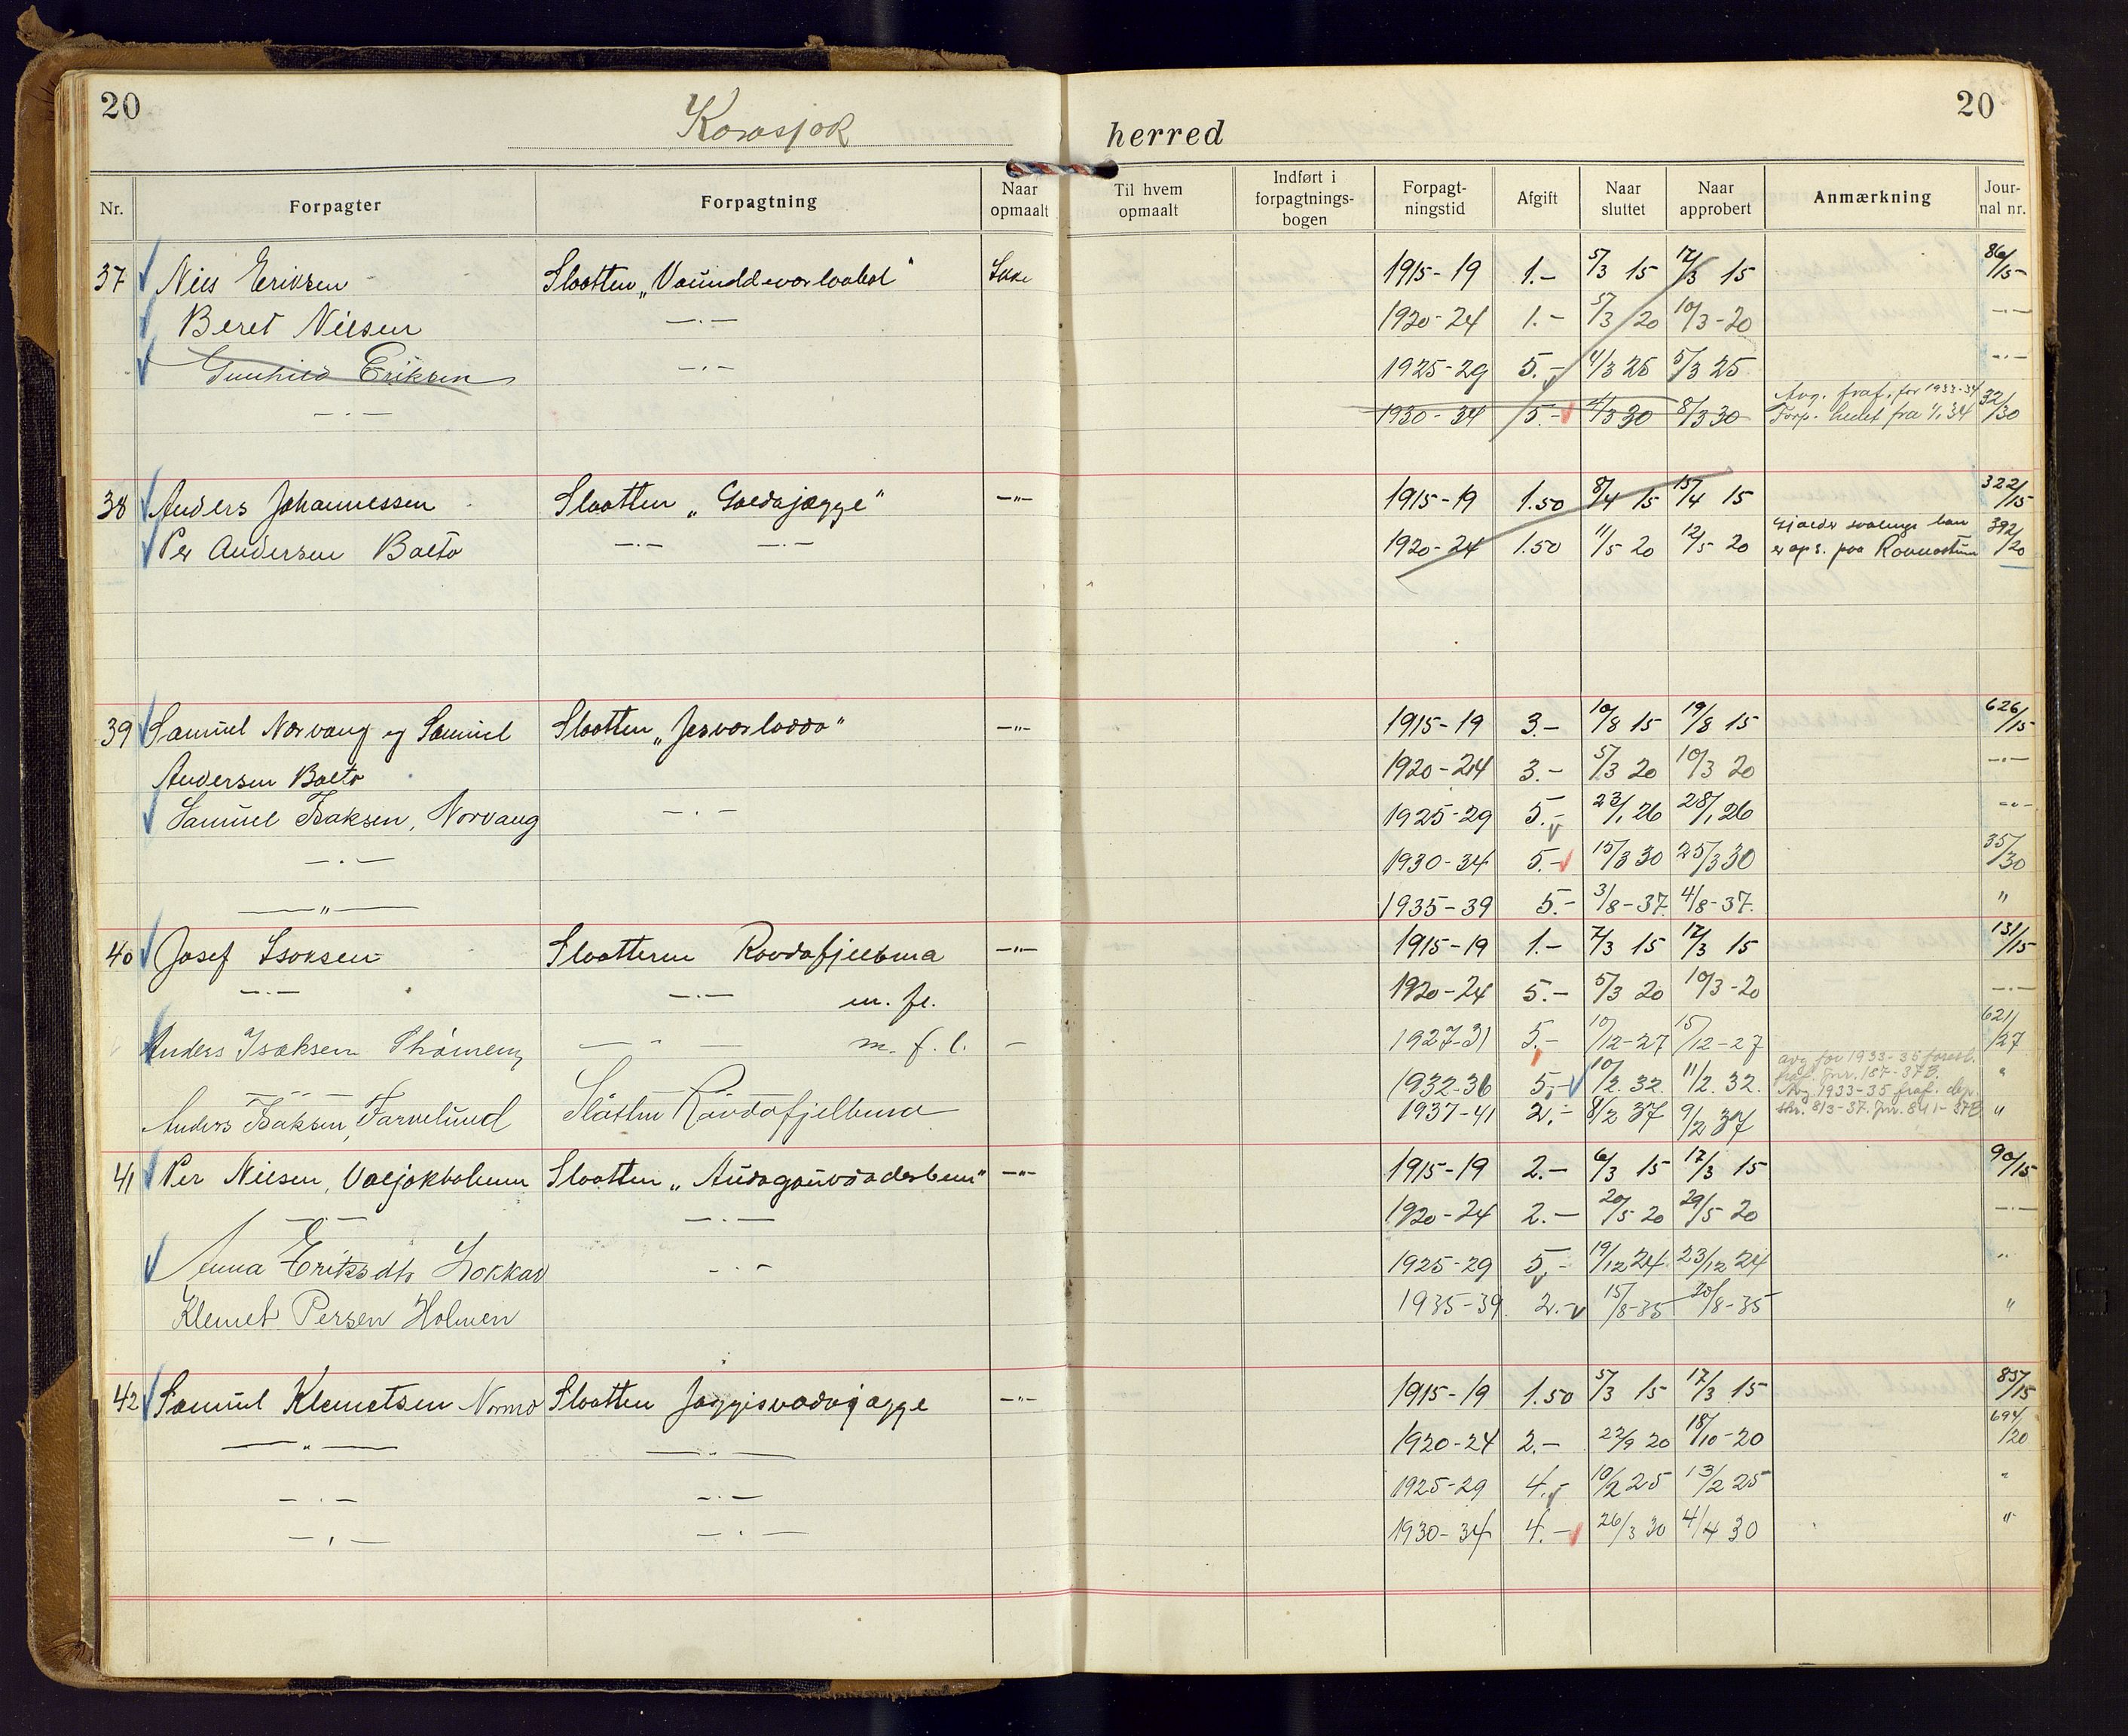 20
Karasjok
herred
20
Nr. Forpagter Forpagtning Naar opmaalt Til hvem opmaalt Indført i forpagtnings-bogen Forpagt-ningstid Afgift Naar sluttet Naar approbert Anmærkning Jour-nal nr.
37 Nils Eriksen Slaatten Ikke 1915-19 1.- 5/3 15 12/3 15 86/15
Beret Nilsen —·— 1920-24 1.- 5/3 20 10/3-20 —·—
Gunhild Eriksen —·— 1925-29 5.- 4/3 25 5/3 25 —·—
—·— 1930-34 5.- 4/3 30 8/3 30 Avg. fraf. for 1933-34 Forp. hevet fra 1/1 34 32/30
38 Anders Johannessen Slaatten „Gaedajægge" —"— 1915-19 1.50 8/4 15 15/4 15 322/15
Per Andersen Balto —·— —·— 1920-24 1.50 11/5 20 12/5 20 er ops. paa 392/20
39 Samuel Norvang og Samuel Slaatten „Jesvarladda" —"— 1915-19 3.- 10/8 15 19/8 15 626/15
Andersen Balto 1920-24 3.- 5/3 20 10/3 20 —·—
Samuel Isaksen, Norvang —·— 1925-29 5.- 23/1 26 28/1 26 —"—
—·— 1930-34 5.- 15/3 30 25/3 30 35/30
—"— 1935-39 5.- 3/8-37. 4/8-37. "
40 Josef Isaksen Slaatterne Ravdafjielbma —"— 1915-19 1.- 7/3 15 12/3 15 131/15
—·— —·— m. fl. 1920-24 5.- 5/3 20 10/3-20 —·—
Anders Isaksen —"— m. f. l. — 1927-31 5.- 10/12-27 15/12-27 621/27
—"— 1932-36 5.- 10/2. 32. 11/2. 32. avg for 1933-35 foresl. fraf. Jnr. 187-37B. "
Anders Isaksen, Farvelund Slåtten Ravdafjelbma 1937-41 2.- 8/2 37 9/2 37 Avg. 1933-35 fraf. dep. skr. 8/3-37. Jnr. 841-37B "
41 Per Nilsen, Valjokholmen Slaatten —"— 1915-19 2.- 6/3 15 12/3 15 90/15
—"— —·— 1920-24 2.- 20/5 20 29/5 20 —·—
Anna Eriksdtr —·— 1925-29 5.- 19/12 24 23/12 24 "
Klemet Persen Holmen 1935-39. 2.- 15/8-35 20/8-35 "
42 Samuel Klemetsen Normo Slaatten Jæggisvadasjægge —"— 1915-19 1.50 5/3 15 12/3 15 85/15
—"— —"— 1920-24 2.- 22/9 20 18/10-20 694/20
—·— —·— 1925-29 4.- 10/2 25 13/2 25 "
—·— —·— 1930-34 4.- 26/3 30 4/4 30 "